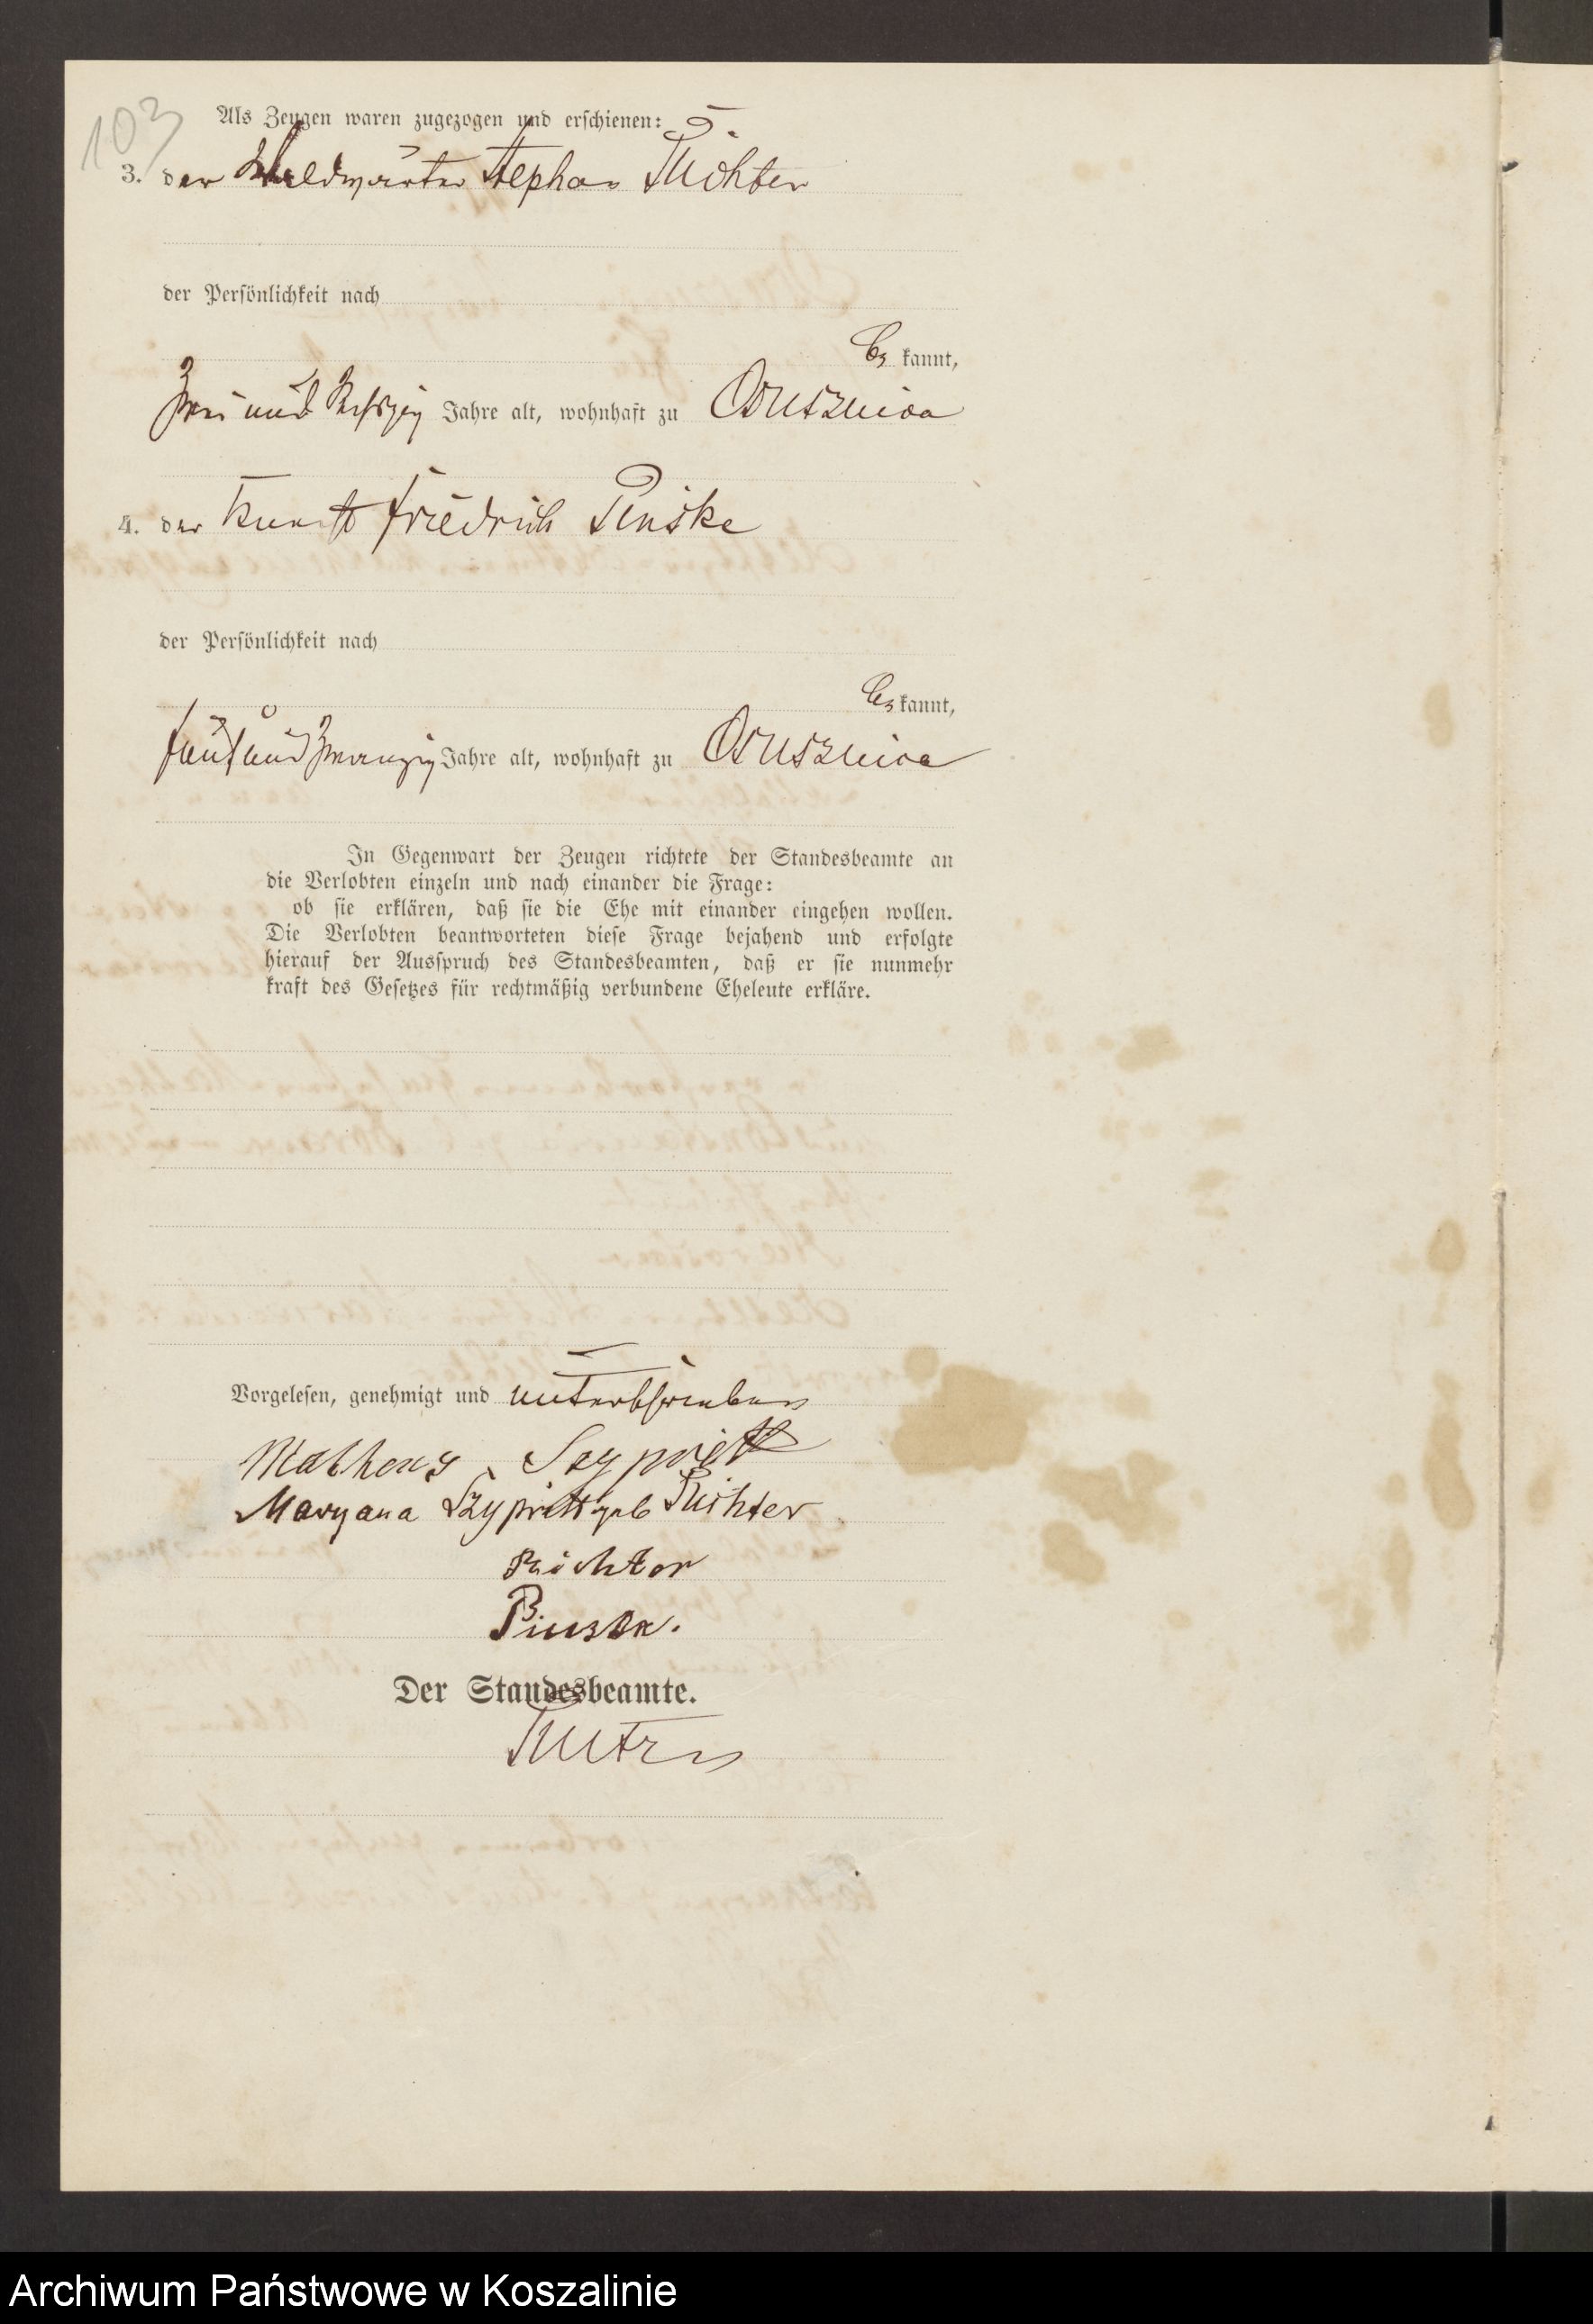 103
Als Zeugen waren zugezogen und erschienen:
3. der Waldwärter Stephan Richter
der Persönlichkeit nach
be kannt,
zwei und Jahre alt, wohnhaft zu Ossusznica
4. der Friedrich Pinske
der Persönlichkeit nach
be kannt,
fünf und zwanzig Jahre alt, wohnhaft zu Ossusznica
In Gegenwart der Zeugen richtete der Standesbeamte an
die Verlobten einzeln und nach einander die Frage:
ob sie erklären, daß sie die Ehe mit einander eingehen wollen.
Die Verlobten beantworteten diese Frage bejahend und erfolgte
hierauf der Ausspruch des Standesbeamten, daß er sie nunmehr
kraft des Gesetzes für rechtmäßig verbundene Eheleute erkläre.
Vorgelesen, genehmigt und unterschrieben
Matheus Szyprett
Maryana Szyprett geb Richter
Richter
Pinske.
Der Standesbeamte.
Archiwum Państwowe w Koszalinie